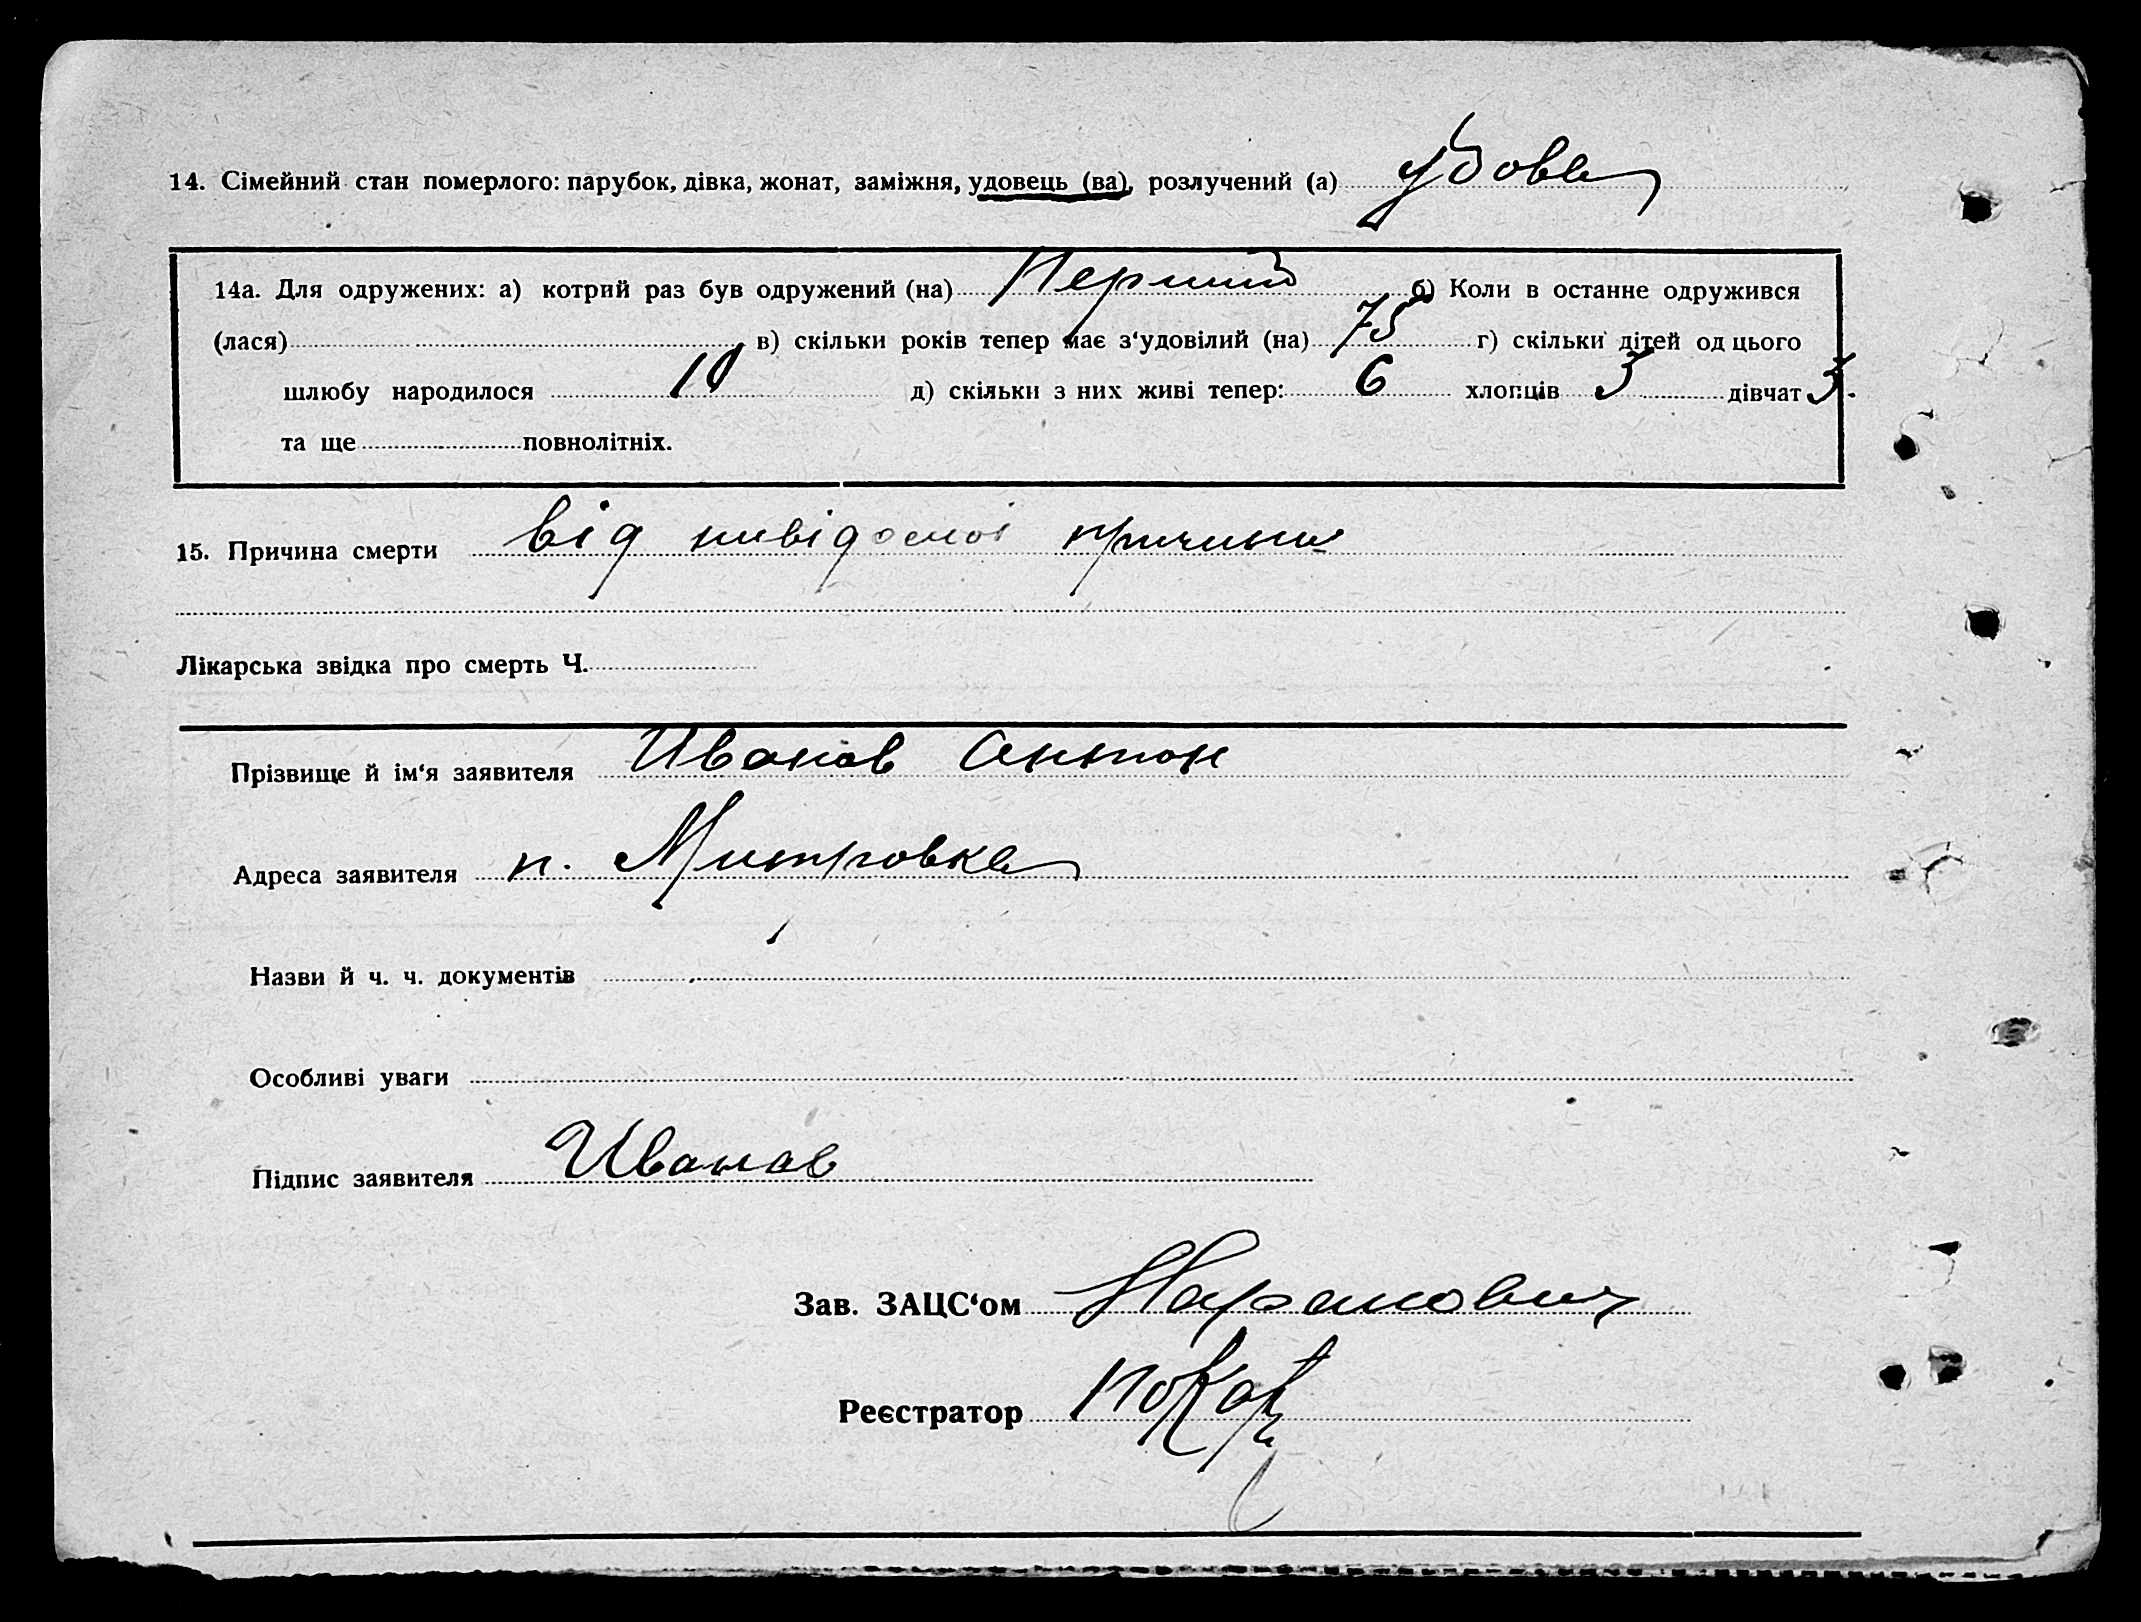 14. Сімейний стан померлого: парубок, дівка, жонат, заміжня, удовець (ва), розлучений (а) удова
14а. Для одружених: а) котрий раз був одружений (на) Перший б) Коли в останнє одружився
(лася) в) скільки років тепер має з‘удовілий (на) 75 г) скільки дітей од цього
шлюбу народилося 10 д) скільки з них живі тепер: 6 хлопців 3 дівчат 3.
та ще повнолітніх.
15. Причина смерти від нивідомоі причини
Лікарська звідка про смерть Ч.
Прізвище й ім‘я заявителя Иванов Антон
Адреса заявителя п. Митровка
Назви й ч. ч. документів
Особливі уваги
Підпис заявителя Иванов
Зав. ЗАЦС‘ом
Реєстратор